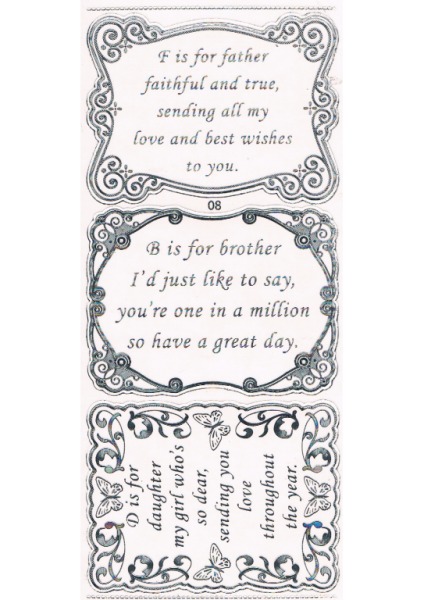 F is for father
faithful and true,
sending all my
love and best wishes
to you.
08
B is for brother
I'd just like to say,
you're one in a million
so have a great day.
D is for
daughter
my girl who's
so dear,
sending you
love
throughout
the year.